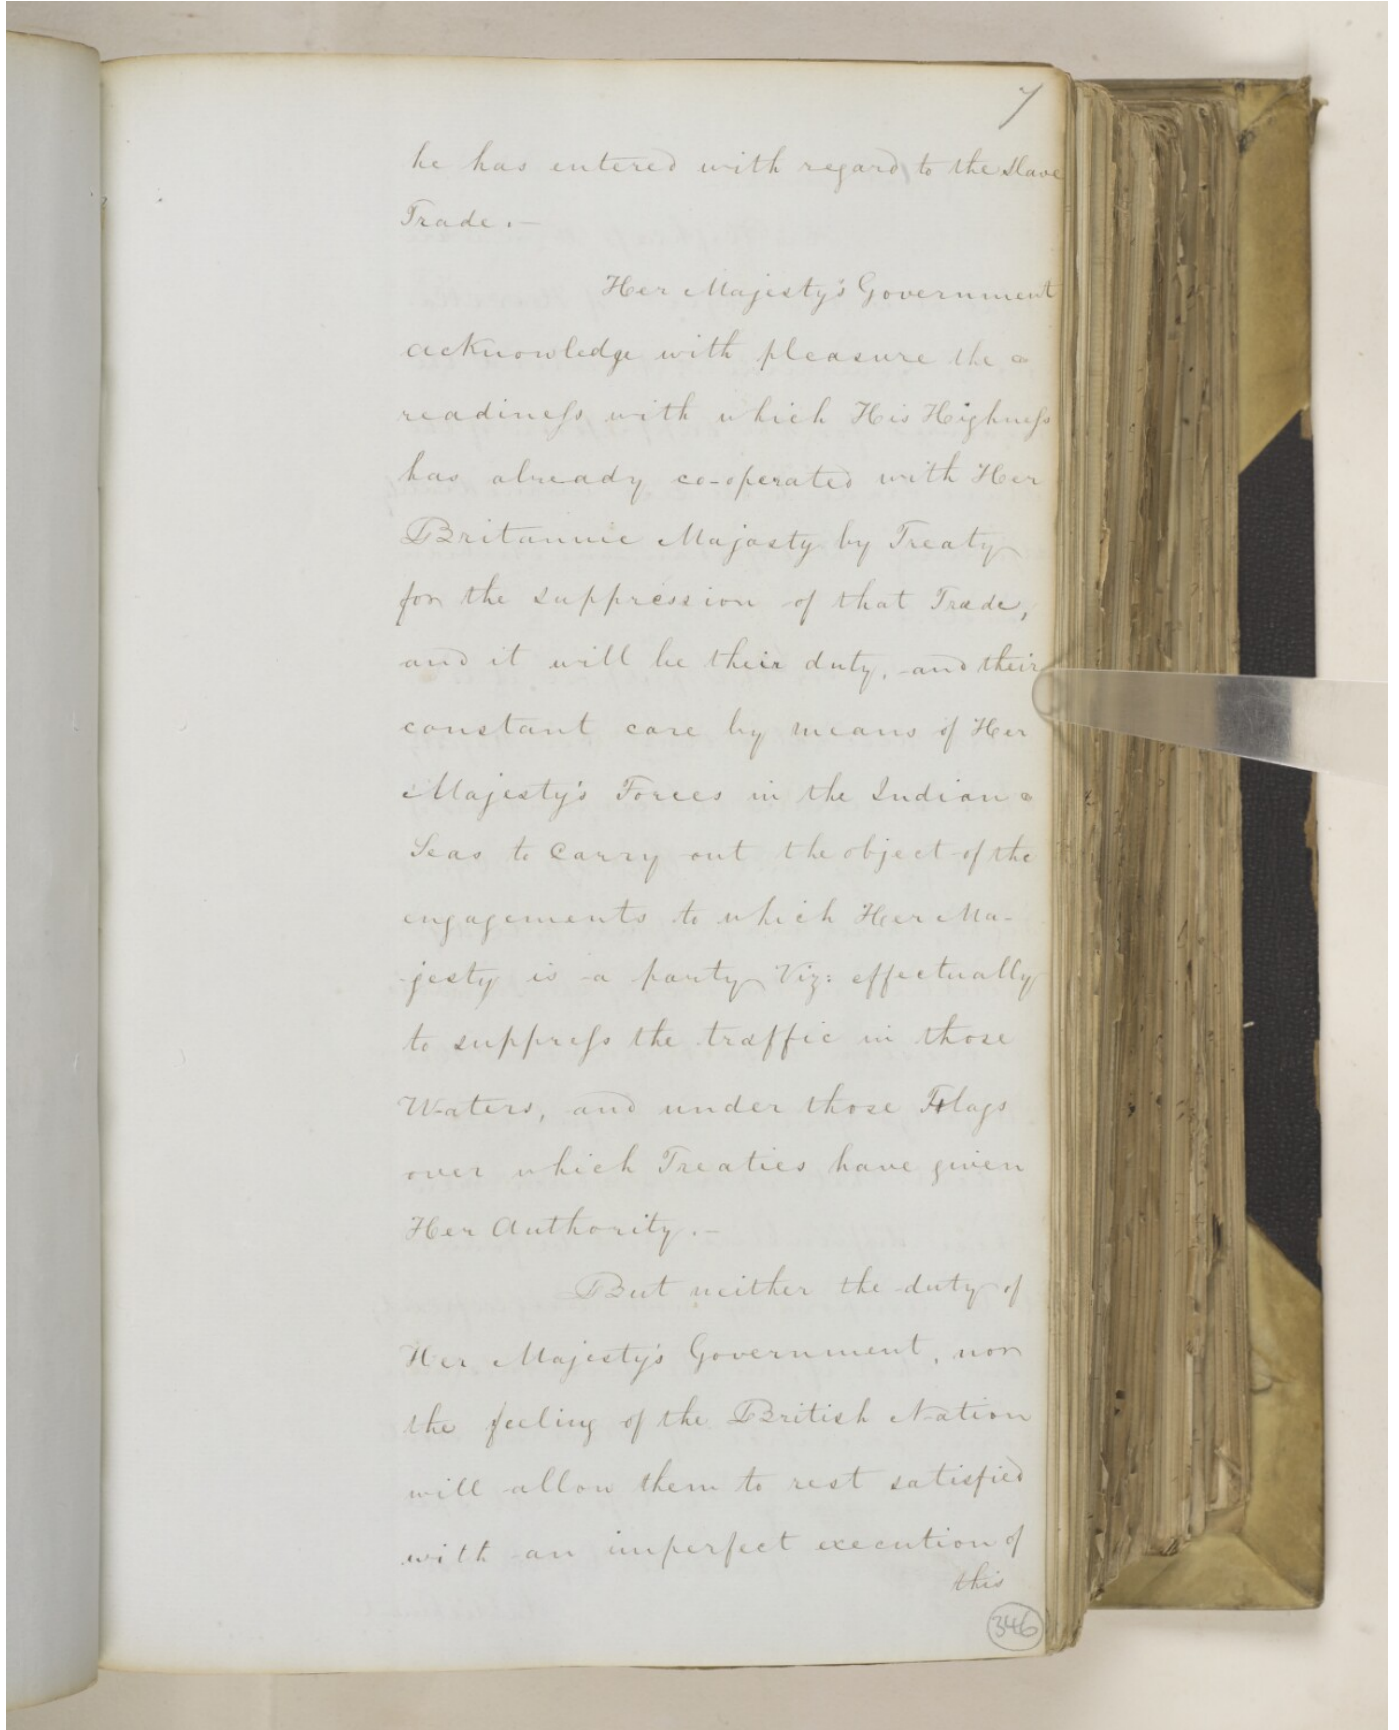 7
he has entered with regard to the Slave
Trade.—
Her Majesty's Government
acknowledge with pleasure the
readineſs with which His Highneſs
has already co-operated with Her
Britannic Majesty by Treaty
for the suppression of that Trade,
and it will be their duty, and their
constant care by means of Her
Majesty's Forces in the Indian
Seas to carry out the object of the
engagements to which Her Ma-
-jesty is a party Viz: effectually
to suppreſs the traffic in those
Waters, and under those Flags
over which Treaties have given
Her Authority.—
But neither the duty of
Her Majesty's Government, nor
the feeling of the British Nation
will allow them to rest satisfied
with an imperfect execution of
this
346